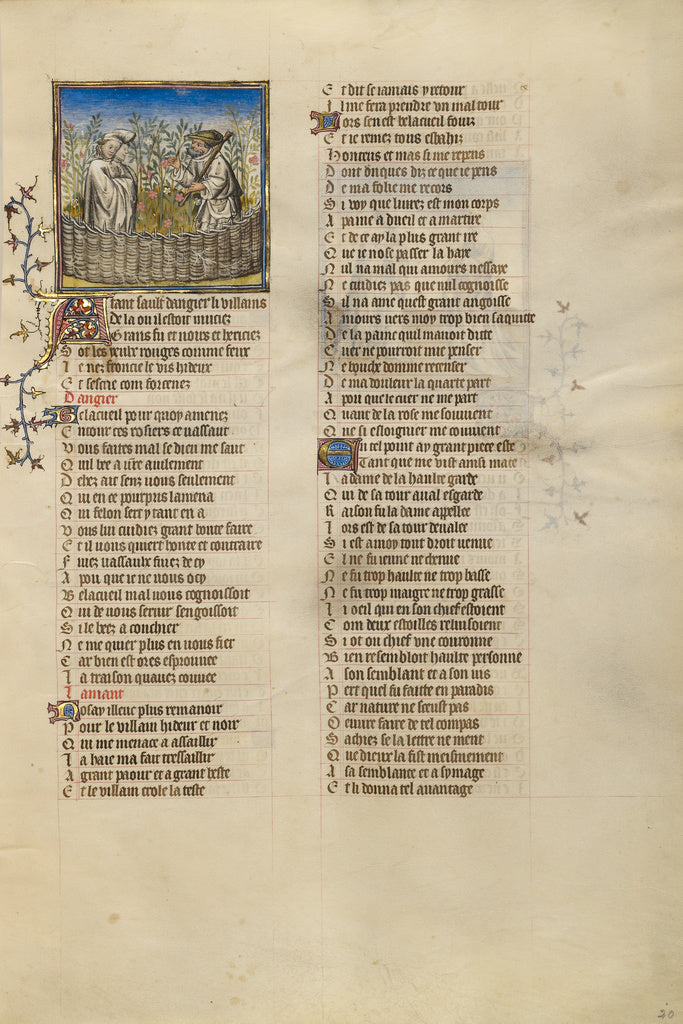 Atant sault dangier li villains
De la ou il estoit muciez
Grans fu et noirs et hericiez
Sot les yeulx rouges comme feux
Le nez froncie le vis hideux
Et sescrie com forcenez
Dangier
Belacueil pour quoy amenez
Entour ces rosiers ce vassaut
Vous faites mal se dieu me saut
Quil bee a vre auilement
Dehez ait senz vous seulement
Qui en ce pourpris lamena
Qui felon sert ytant en a
Vous lui cuidiez grant bonte faire
Et il vous quiert honte et contraire
Fuiez vassaulx fuiez de cy
A pou que ie ne vous ocy
Belacueil mal vous cognoissoit
Qui de vous seruir sengoissoit
Si le beez a conchier
Ne me quier plus en vous fier
Car bien est ores esprouuee
La traison quauez couuee
Lamant
Nosay illeuc plus remanoir
Pour le villain hideux et noir
Qui me menace a assaillir
La haie ma fait tressaillir
A grant paour et a grant heste
Et le villain crole la teste
Et dit se iamais y retour
Il me fera prendre vn mal tour
Lors sen est belacueil fouiz
Et ie remez tous esbahiz
Honteux et mas si me repens
Dont onques diz ce que ie pens
De ma folie me recors
Si voy que liurez est mon corps
A paine a dueil et a martire
Et de ce ay la plus grant ire
Que ie nose passer la haye
Nul na mal qui amours nessaye
Ne cuidiez pas que nul cognoisse
Sil na ame quest grant angoisse
Amours vers moy trop bien saquitte
De la paine quil mauoit ditte
Cuer ne pourroit mie penser
Ne bouche domme recenser
De ma douleur la quarte part
A pou que le cuer ne me part
Quant de la rose me souuient
Que si esloignier me conuient
En tel point ay grant piece este
Tant que me vist ainsi mate
La dame de la haulte garde
Qui de sa tour aual esgarde
Raison fu la dame appellee
Lors est de sa tour deualee
Si est a moy tout droit venue
El ne fu ieune ne chenue
Ne fu trop haulte ne trop basse
Ne fu trop maigre ne trop grasse
Li oeil qui en son chief estoient
Com deux estoilles reluisoient
Si ot ou chief vne couronne
Bien resembloit haulte personne
A son semblant et a son vis
Pert quel fu faitte en paradis
Car nature ne sceust pas
Oeuure faire de tel compas
Sachiez se la lettre ne ment
Que dieux la fist meismement
A sa semblance et a symage
Et li donna tel auantage
20